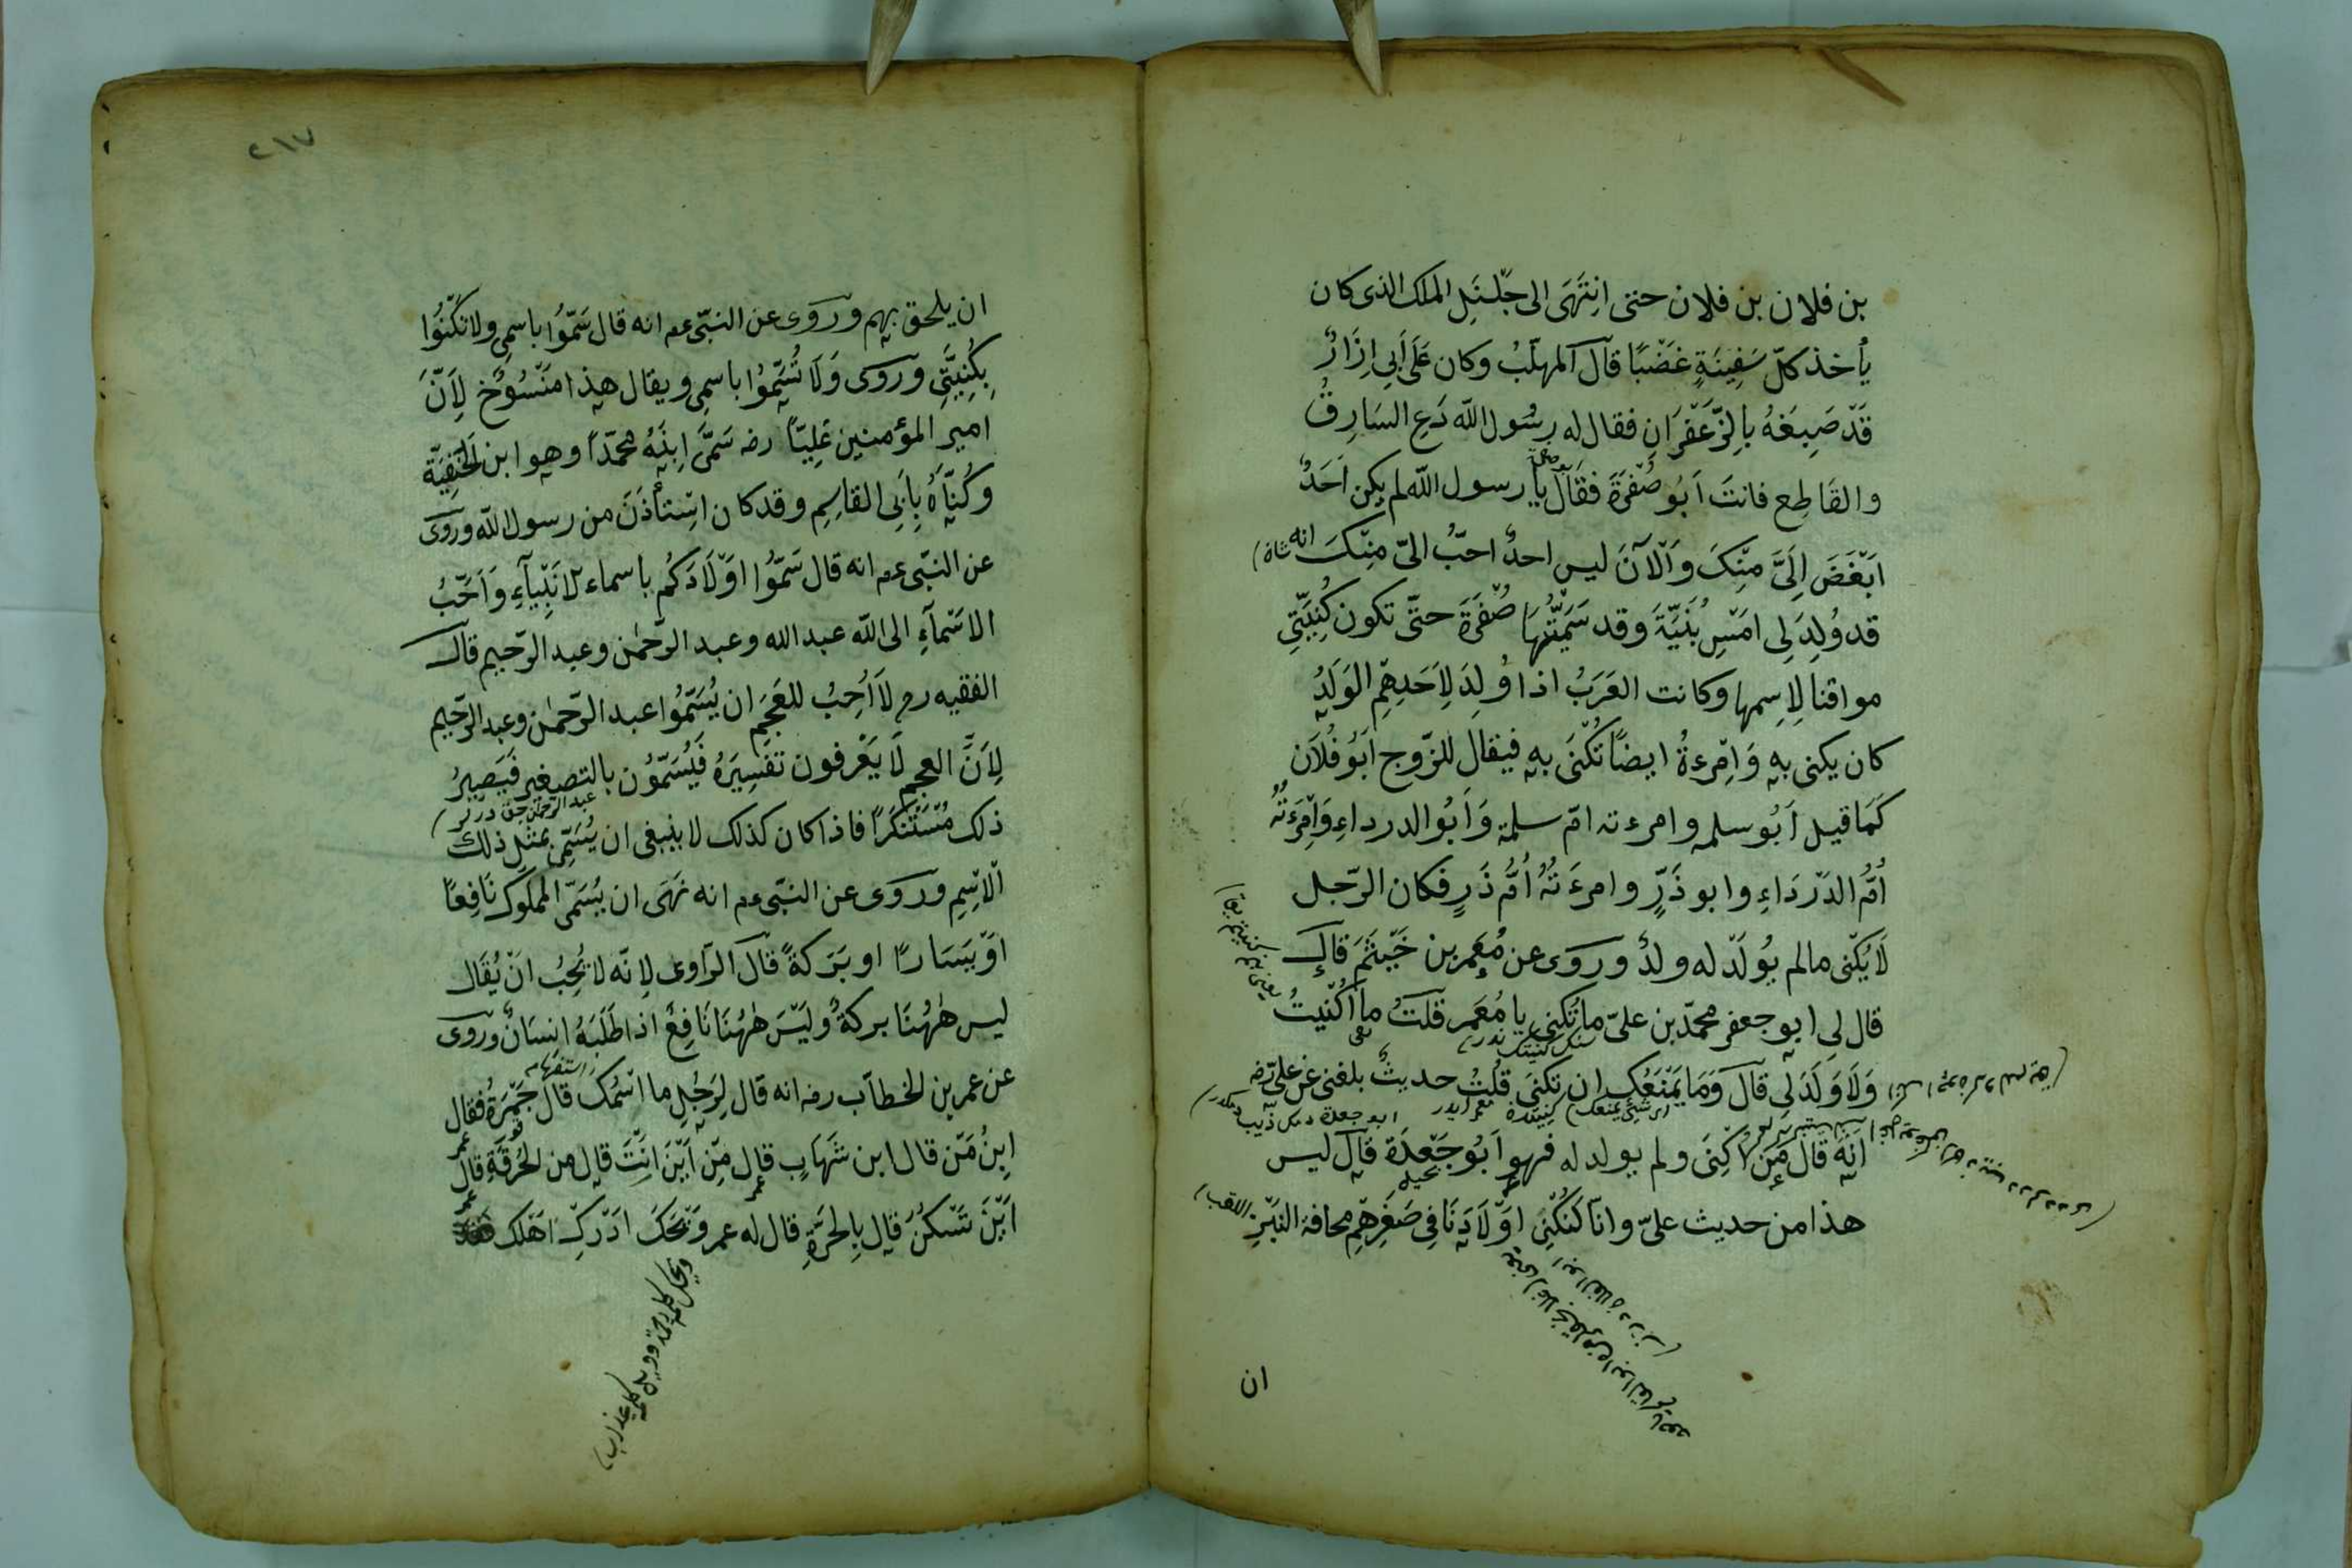 بن فلان بن فلان حتى اِنتَهَى الى جَلَنْدِ الملك الذى كان
يأخذ كلّ سَفِينَةٍ غَصْبًا قال المهلّبُ وكان عَلَى اَبِى اِزَارٌ
قَدْ صَبِغَهُ بِالزَّعْفَرَانِ فقال له رسُول اللّه دَعِ السَارِقُ
والقَاطِع فانتَ اَبُو صُفْرَةَ فقَالَ يا رسول اللّه لم يكن اَحَدٌ
اَبْغَضَ اِلَىَّ مِنْكَ وَالْآنَ ليس احدٌ احبّ الىّ مِنْكَ انه
قد وُلِدَ لِى امْسِ بُنَيَّة وقد سَمَّيْتُهَا صُفْرَةَ حتّى تكون كُنِيَتِى
موافقا لِاِسمها وكانت العَرَبُ اذا وُلِدَ لِاَحَدِهِمِ الوَلَدُ
كان يكنى بهِ وَاِمْرءةُ ايضًا تُكْنَى بهِ فيقال للزّوج اَبُو فُلَان
كَمَا قيل اَبُو سلمه وامرءته امّ سلمة وَاَبُو الدرداءِ وَامْرَءتُهُ
اُمُّ الدَرْدَاءِ وابو ذَرٍّ وامرءَتُهُ اُمُّ ذَرٍ فكان الرّجل
لَا يُكْنى مالم يُولَد له ولدٌ وروى عن مُعَمر بن خَيْثَمَ قال
قال لِى ابو جعفر محمّد بن علىّ ما تُكنِى يا مُعَمر قلتُ ما اُكْنيتُ
وَلَا وَلَدَ لِى قال وَمَا يَمْنَعُكَ ان تكنِىَ قلتُ حديثٌ بلغنى عن علىّ رضه
انّه قال مَن اُكْنِىَ ولم يولد له فهو اَبُو جَعْدَة قال ليس
هذا من حديث علىّ وانّا لَنُكْنِى اوْلَادَنَا فِى صَغَرِهِمِ مخافة النَبَزِ
ان
٢١٧
ان يلحق بهم وروى عن النبّى عم انه قال سَمّوُا باسمِى ولا تكْنُوا
بِكُنِيَتِّى وروى وَلَا تُسَمّوُا باسمِى ويقال هذا مَنْسُوُخ لِاَنَّ
امير المؤمنين عَلِيّاً رضه سَمَّى اِبنَهُ محمّداً وهو ابن الحَنَفِيَّة
وكُنَّاهُ بِاَبِى القاسِمِ وقد كان اسْتاْذَنَ من رسول اللّه وروى
عن النبّى عم انه قال سَمّوُا اوْلَادَكُم باسماء الانْبِيآءِ وَاَحَبُّ
الاسْمآءِ الى اللّه عبد الله وعبد الرّحمٰن وعبد الرّحيم قال
الفقيه رح لَا اُحِبُ للعَجَمِ ان يُسَمّوُا عبد الرّحمٰن وعبد الرّحيم
لِاَنَّ العجم لَا يَعْرفون تفْسِيرَهُ فَيُسَمّوُن بالتصغير فيَصيرُ
ذلك مُسْتَنْكَراً فاذا كان كذلك لا ينبغى ان يُسَمِّى بمثل ذلك
الْاسِم وروى عن النبّى عم انه نَهَى ان يُسَمّى المملوك نَافِعًا
اوْ يَسَارًا او بَرَكةً قال الرّاوى لِانّه لا يُحِبُ انْ يُقَال
ليس هٰهُنَا بركةٌ ولَيْسَ هٰهُنَا نَافِعٌ اذا طَلَبَهُ انسَانٌ وروى
عن عمر بن الخطاب رضه انه قال لِرَجُلٍ ما اسْمُك قال جَمْرَةُ فقال
ابنُ مَنْ قال ابن شَهَابٍ قال مِنْ اَيْنَ اَنْتَ قال من الحُرَقَةِ قال
اَيْنَ تَسْكنُ قال بِالحَرَّةِ قال له عمر وَيْحَكَ ادْرِكْ اَهْلك فقد
ويحك كلمه رحمة وويل كلمه عذاب